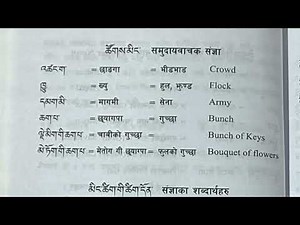 ཚོགས་མིང་ समुदायवाचक संज्ञा
འཚང་ག = छाङगा = भीडभाड Crowd
ཁྱུ = ख्यु = हुल, झुण्ड Flock
དམག་མི = मागमी = सेना Army
ཆག་པ = छ्यागपा = गुच्छा Bunch
ལྡེ་མིག་གི་ཆག་པ = चाबीको गुच्छा Bunch of Keys
མེ་ཏོག་གི་ཆག་པ = मेतोग गी छ्यागपा = फुलको गुच्छा Bouquet of flowers
མིང་ཚིག་གི་ཚིག་དོན་ संज्ञाका शब्दार्थहरु